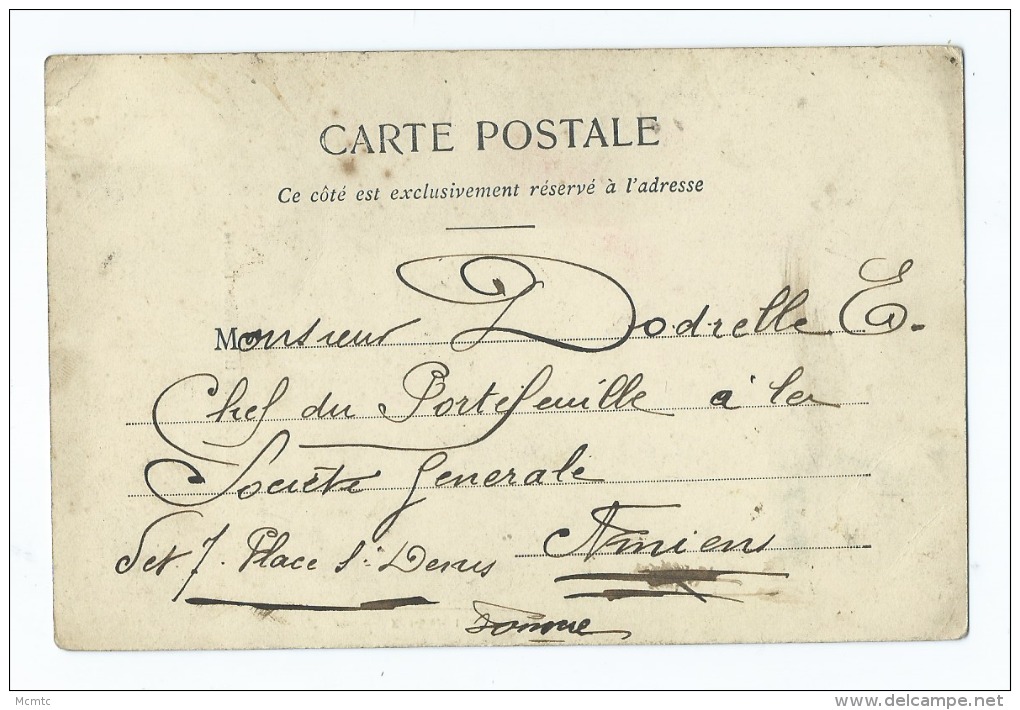 CARTE POSTALE
Ce côté est exclusivement réservé à l'adresse
Monsieur Dodrelle E.
Chef du Portefeuille à la
Société Generale
7. Place St Denis Amiens
Somme
Mcmtc
delcampe.net